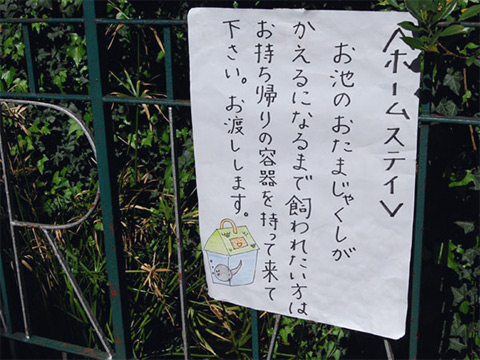 〈ホームステイ〉
お池のおたまじゃくしが
かえるになるまで飼われたい方は
お持ち帰りの容器を持って来て
下さい。お渡しします。